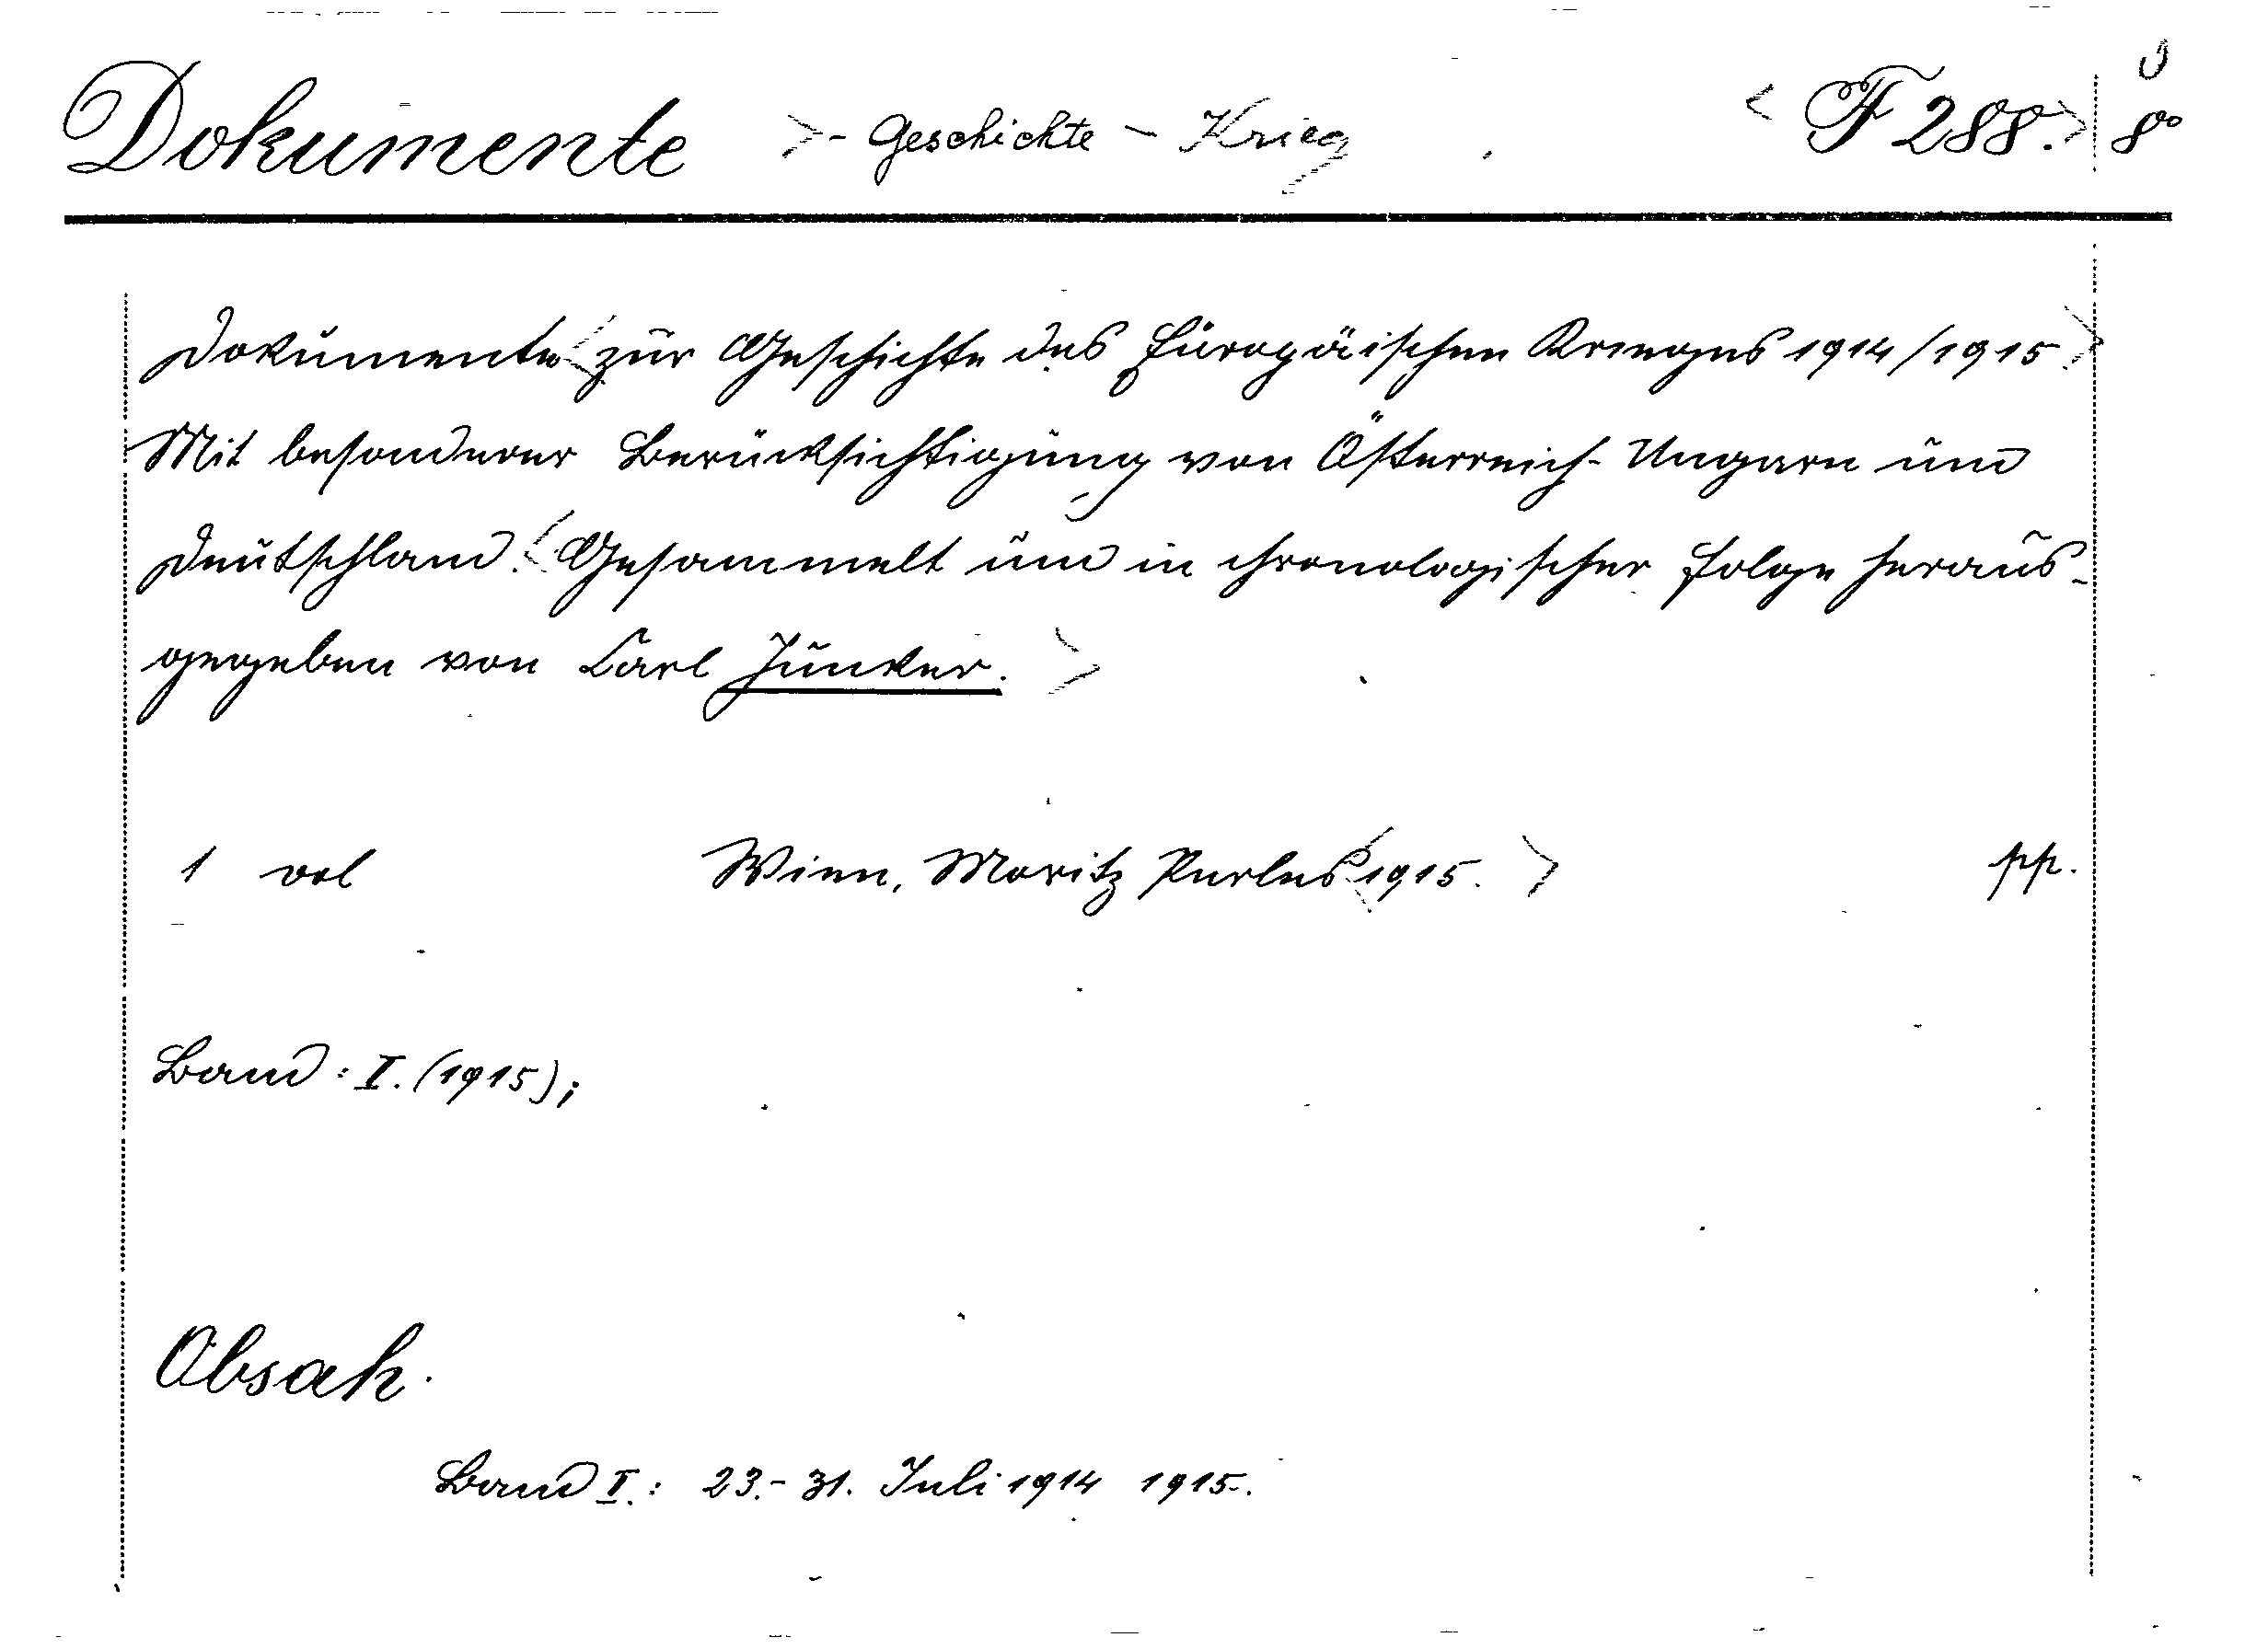 Dokumente >- Geschichte - Krieg < F 288. > 8°
Dokumente < zur Geschichte des Europäischen Krieges 1914/1915 >
Mit besonderer Berücksichtigung von Österreich-Ungarn und
Deutschland. < Gesammelt und in chronologischer Folge heraus-
gegeben von Carl Junker. >
1 vol Wien, Moritz Perles < 1915. > pp.
Band: I. (1915);
Obsah.
Band I.: 23.- 31. Juli 1914 1915.